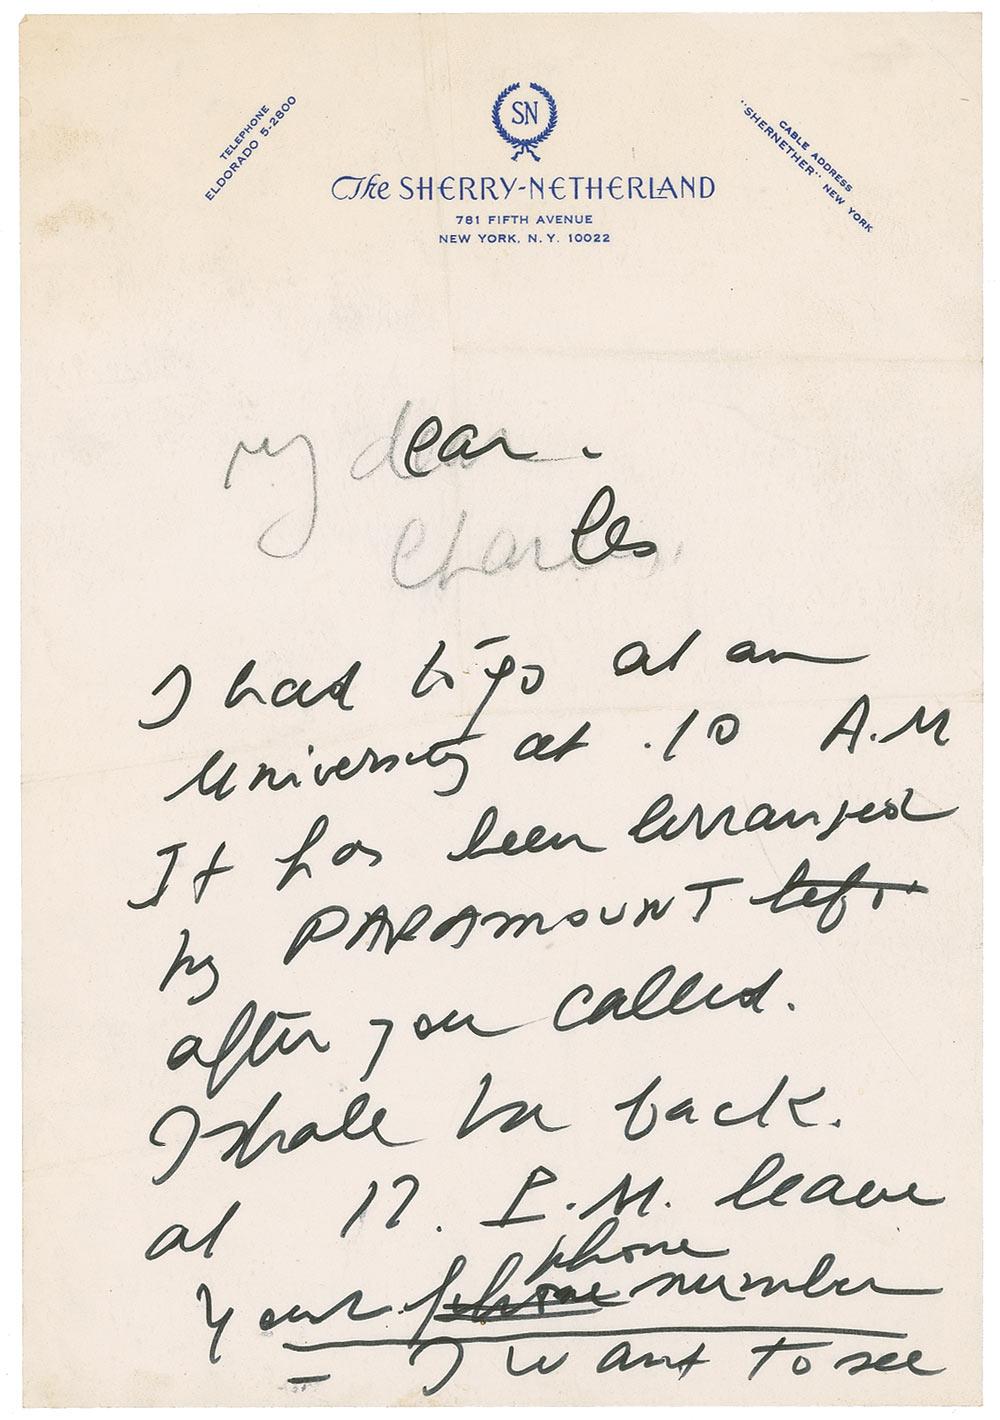 TELEPHONE
ELDORADO 5-2800
SN
The SHERRY-NETHERLAND
781 FIFTH AVENUE
NEW YORK, N.Y. 10022
CABLE ADDRESS
"SHERNETHER" NEW YORK
My dear.
Charles,
I had to go at an
University at .10 A.M
It has been arranged
by PARAMOUNT left
after you called.
I shale be back.
at 12. P.M. leave
phone
your phone number
I want to see